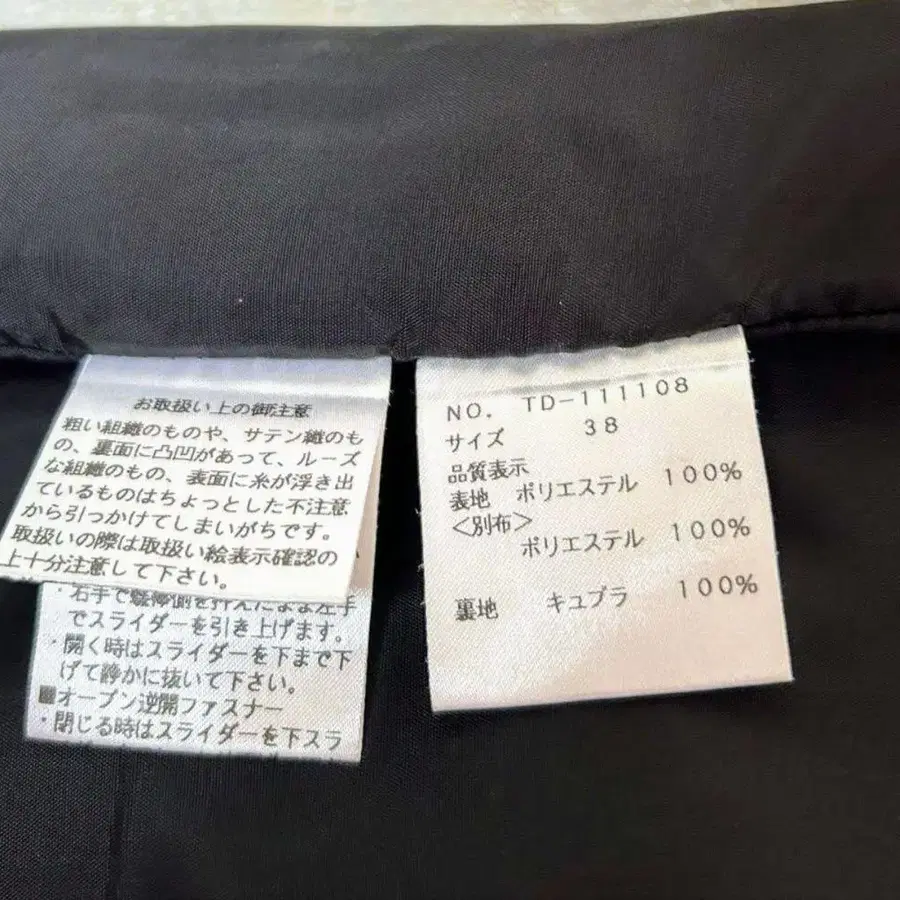 お取扱い上の御注意
粗い組織のものや、サテン織のも
の、裏面に凸凹があって、ルーズ
な組織のもの、表面に糸が浮き出
ているものはちょっとした不注意
から引っかけてしまいがちです。
取扱いの際は取扱い絵表示確認の
上十分注意して下さい。
・右手で蝶棒側を押えたまま左手
でスライダーを引き上げます。
・開く時はスライダーを下まで下
げて静かに抜いて下さい。
■オープン逆開ファスナー
・閉じる時はスライダーを下スラ
NO. TD-111108
サイズ 38
品質表示
表地 ポリエステル 100%
<別布>
ポリエステル 100%
裏地 キュプラ 100%